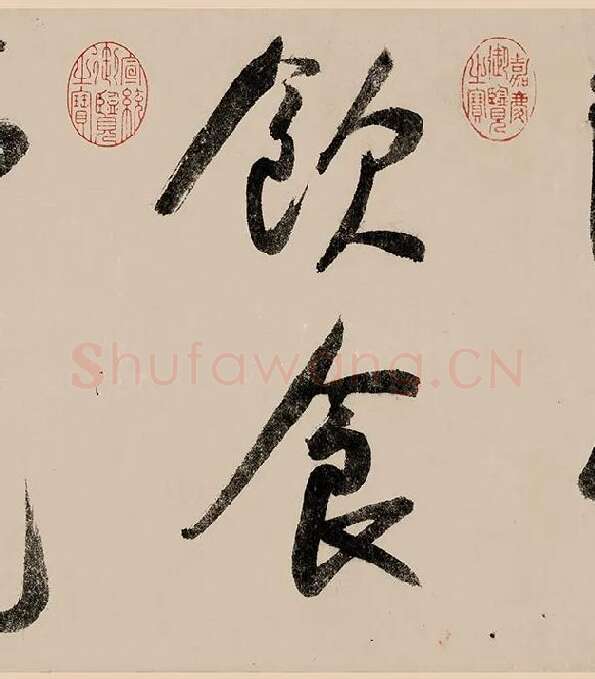 嘉慶御覽之寶
飲食
宣統御覽之寶
Shufawang.CN